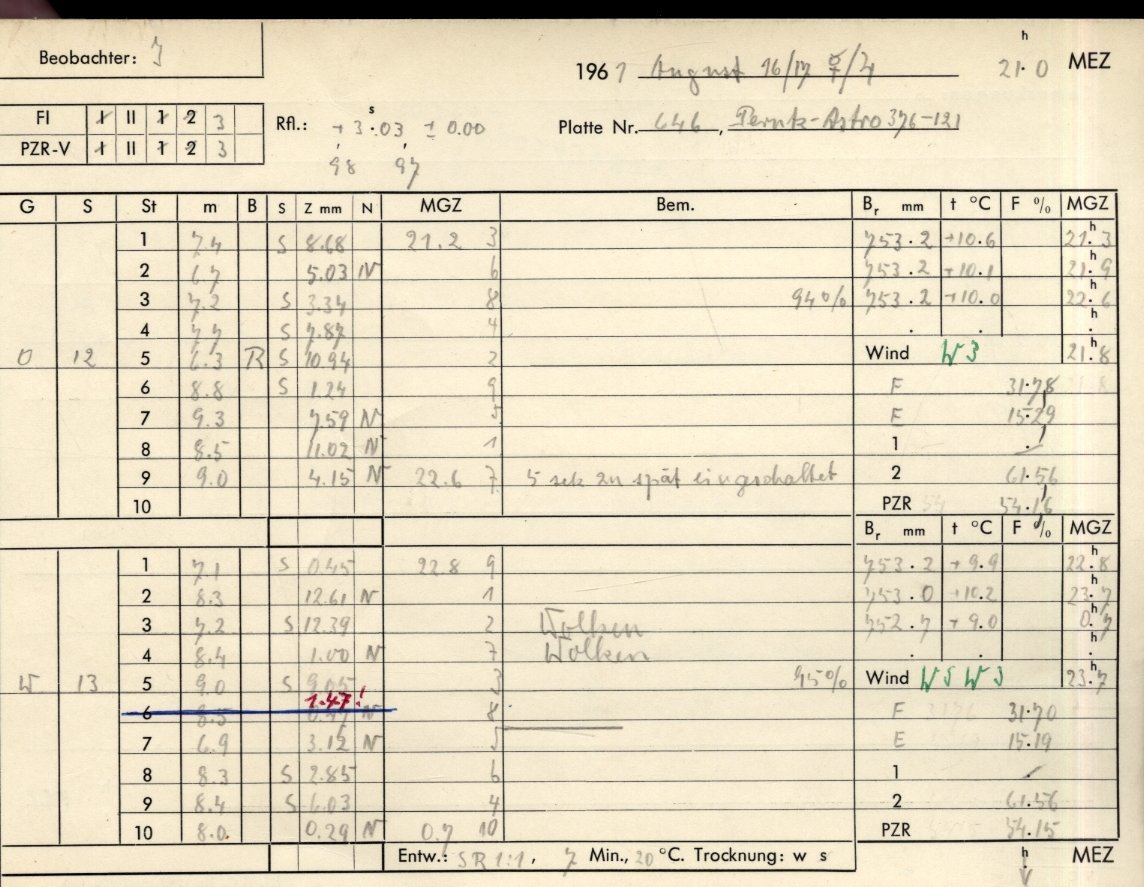 Beobachter: J
1961 August 16/17 ☿/♃ 21.0 h MEZ
Fl 1 II 1 2 3
Rfl.: +3.03 s ± 0.00
Platte Nr. 646, Perutz-Astro 376-121
PZR-V 1 II 1 2 3
98 97
G S St m B S Z mm N MGZ Bem. Br mm t °C F % MGZ
1 7.4 S 8.68 21.2 3 753.2 +10.6 21.3 h
2 6.7 5.03 N 6 753.2 +10.1 21.9 h
3 7.2 S 3.34 8 94% 753.2 +10.0 22.6 h
4 7.7 S 7.87 4 . . . h
O 12 5 6.3 R S 10.94 2 Wind W 3 21.8 h
6 8.8 S 1.24 9 F 31.78
7 9.3 7.59 N 5 E 15.29
8 8.5 11.02 N 1 1 .
9 9.0 4.15 N 22.6 7 5 sek zu spät eingeschaltet 2 61.56
10 PZR 54.16
Br mm t °C F % MGZ
1 7.1 S 0.45 22.8 9 753.2 +9.9 22.8 h
2 8.3 12.61 N 1 753.0 +10.2 23.7 h
3 7.2 S 12.39 2 Wolken 752.7 +9.0 0.7 h
4 8.4 1.00 N 7 Wolken . . . h
W 13 5 9.0 S 9.05 3 95% Wind W 5 W 3 23.7 h
1.47!
6 8.5 0.47 N 8 F 31.70
7 6.9 3.12 N 5 E 15.19
8 8.3 S 2.85 6 1 .
9 8.4 S 6.03 4 2 61.56
10 8.0 0.29 N 0.7 10 PZR 54.15
Entw.: SR 1:1, 7 Min., 20 °C. Trocknung: w s h MEZ